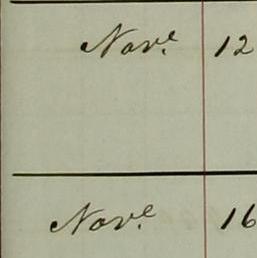 Nov.e 12
Nov.e 16